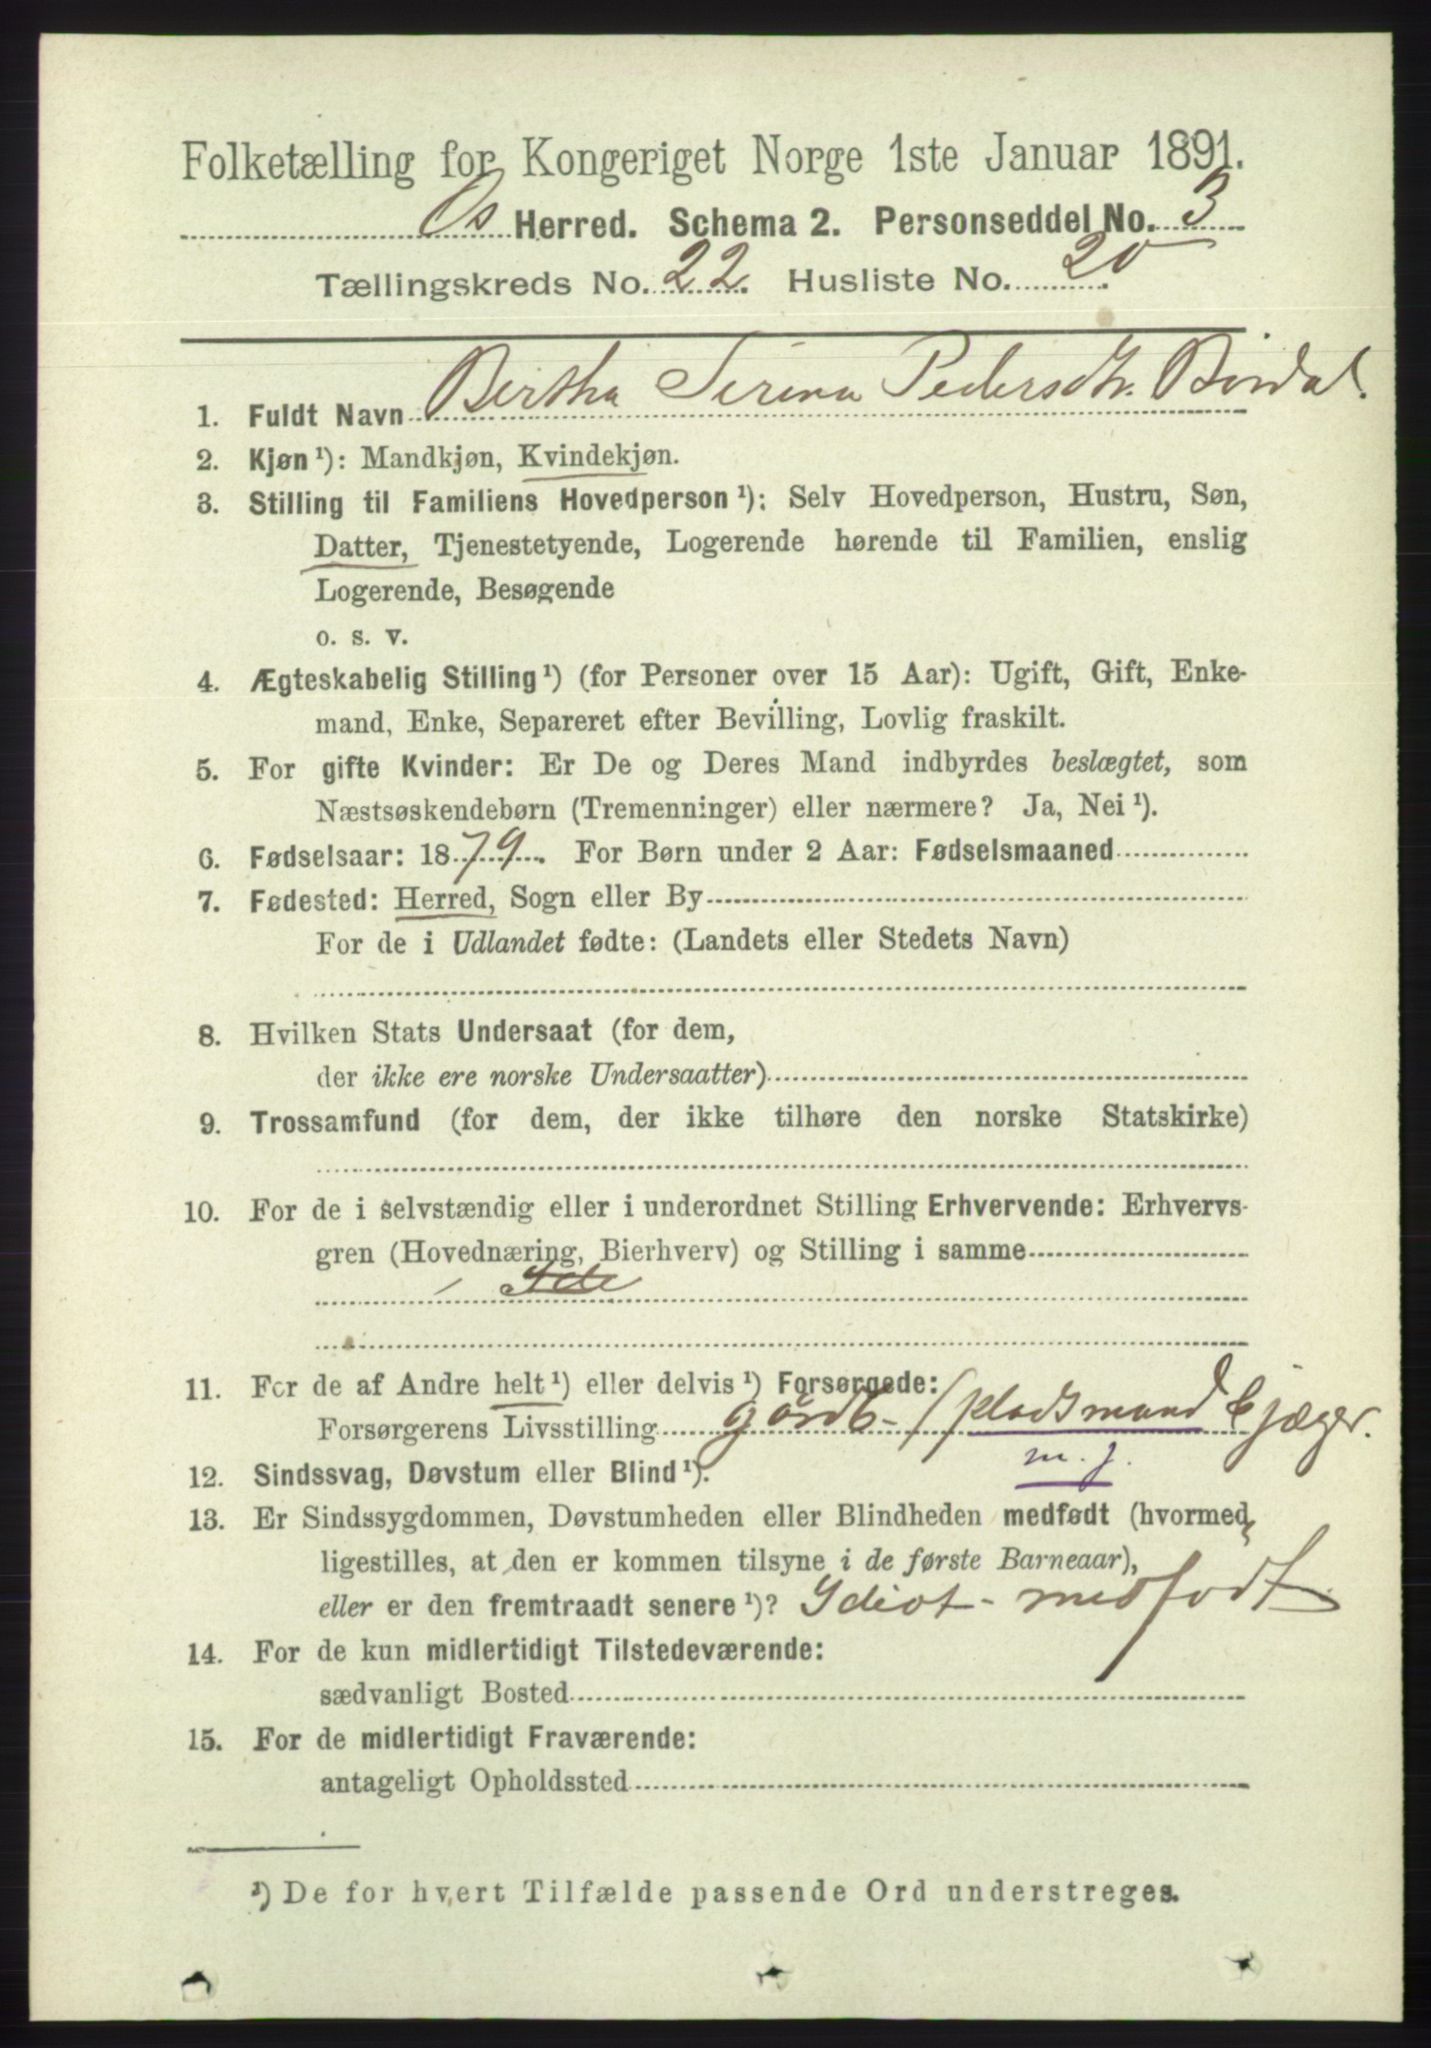 Folketælling for Kongeriget Norge 1ste Januar 1891.
Os Herred. Schema 2. Personseddel No. 3
Tællingskreds No. 22. Husliste No. 20.
1. Fuldt Navn Bertha Serina Pedersdtr. Bördal.
2. Kjøn ¹): Mandkjøn, Kvindekjøn.
3. Stilling til Familiens Hovedperson ¹): Selv Hovedperson, Hustru, Søn,
Datter, Tjenestetyende, Logerende hørende til Familien, enslig
Logerende, Besøgende
o. s. v.
4. Ægteskabelig Stilling ¹) (for Personer over 15 Aar): Ugift, Gift, Enke-
mand, Enke, Separeret efter Bevilling, Lovlig fraskilt.
5. For gifte Kvinder: Er De og Deres Mand indbyrdes beslægtet, som
Næstsøskendebørn (Tremenninger) eller nærmere? Ja, Nei ¹).
6. Fødselsaar: 1879. For Børn under 2 Aar: Fødselsmaaned
7. Fødested: Herred, Sogn eller By
For de i Udlandet fødte: (Landets eller Stedets Navn)
8. Hvilken Stats Undersaat (for dem,
der ikke ere norske Undersaatter)
9. Trossamfund (for dem, der ikke tilhøre den norske Statskirke)
10. For de i selvstændig eller i underordnet Stilling Erhvervende: Erhvervs-
gren (Hovednæring, Bierhverv) og Stilling i samme
11. For de af Andre helt ¹) eller delvis ¹) Forsørgede:
Forsørgerens Livsstilling gårdb- / pladsmand & jæger.
12. Sindssvag, Døvstum eller Blind ¹). m. j.
13. Er Sindssygdommen, Døvstumheden eller Blindheden medfødt (hvormed
ligestilles, at den er kommen tilsyne i de første Barneaar),
eller er den fremtraadt senere ¹)? Idiot - medfødt
14. For de kun midlertidigt Tilstedeværende:
sædvanligt Bosted
15. For de midlertidigt Fraværende:
antageligt Opholdssted
¹) De for hvert Tilfælde passende Ord understreges.